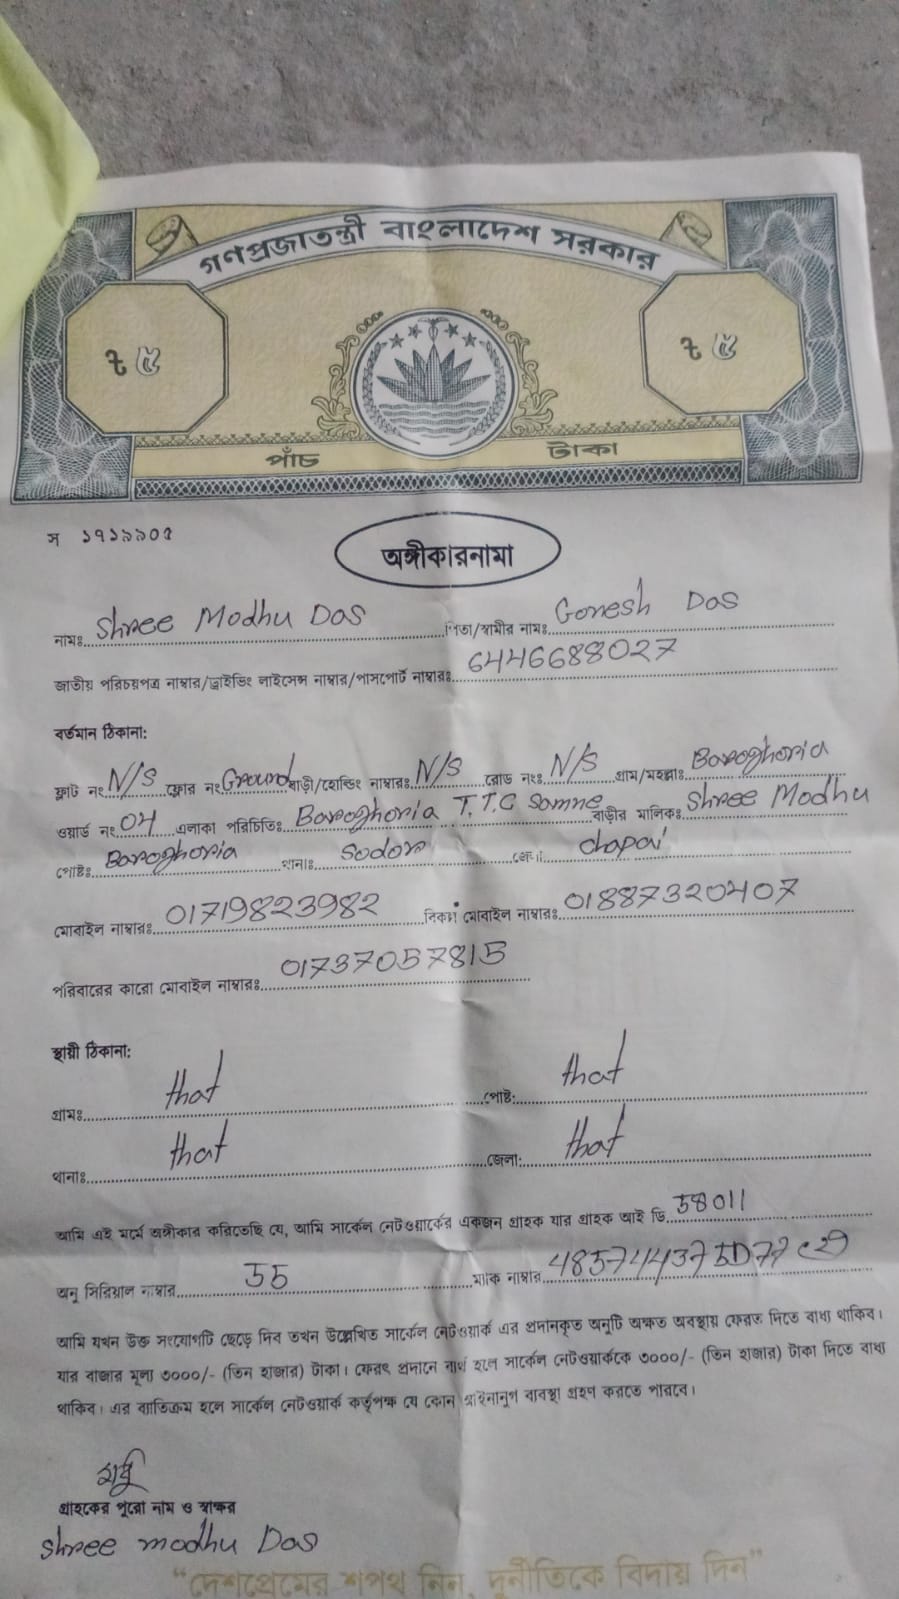 গণপ্রজাতন্ত্রী বাংলাদেশ সরকার
৳ ৫ ৳ ৫
পাঁচ টাকা
স ১৭১৯৯০৫
অঙ্গীকারনামা
নামঃ Shree Modhu Das পিতা/স্বামীর নামঃ Gonesh Das
জাতীয় পরিচয়পত্র নাম্বার/ড্রাইভিং লাইসেন্স নাম্বার/পাসপোর্ট নাম্বারঃ 6446688027
বর্তমান ঠিকানা:
ফ্লাট নং N/S ফ্লোর নং Ground বাড়ী/হোল্ডিং নাম্বারঃ N/S রোড নংঃ N/S গ্রাম/মহল্লাঃ Baroghoria
ওয়ার্ড নং 04 এলাকা পরিচিতিঃ Baroghoria T.T.C Samne বাড়ীর মালিকঃ Shree Modhu
পোষ্টঃ Baroghoria থানাঃ Sodor জেলা chapai
মোবাইল নাম্বারঃ 01719823982 বিকাশ মোবাইল নাম্বারঃ 01887320407
পরিবারের কারো মোবাইল নাম্বারঃ 01737057815
স্থায়ী ঠিকানা:
গ্রামঃ that পোষ্ট: that
থানাঃ that জেলা: that
আমি এই মর্মে অঙ্গীকার করিতেছি যে, আমি সার্কেল নেটওয়ার্কের একজন গ্রাহক যার গ্রাহক আই ডি 58011
অনু সিরিয়াল নাম্বার 55 ম্যাক নাম্বার 485744375D77
আমি যখন উক্ত সংযোগটি ছেড়ে দিব তখন উল্লেখিত সার্কেল নেটওয়ার্ক এর প্রদানকৃত অনুটি অক্ষত অবস্থায় ফেরত দিতে বাধ্য থাকিব।
যার বাজার মূল্য ৩০০০/- (তিন হাজার) টাকা। ফেরৎ প্রদানে ব্যর্থ হলে সার্কেল নেটওয়ার্ককে ৩০০০/- (তিন হাজার) টাকা দিতে বাধ্য
থাকিব। এর ব্যতিক্রম হলে সার্কেল নেটওয়ার্ক কর্তৃপক্ষ যে কোন আইনানুগ ব্যবস্থা গ্রহণ করতে পারবে।
মধু
গ্রাহকের পুরো নাম ও স্বাক্ষর
shree modhu Das
“দেশপ্রেমের শপথ নিন, দুর্নীতিকে বিদায় দিন”